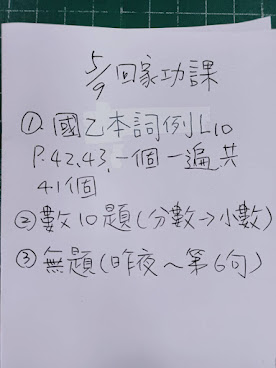 5/9 回家功課
①.國乙本詞例L10
P.42、43,一個一遍共
41個
②數10題(分數→小數)
③無題(昨夜~第6句)